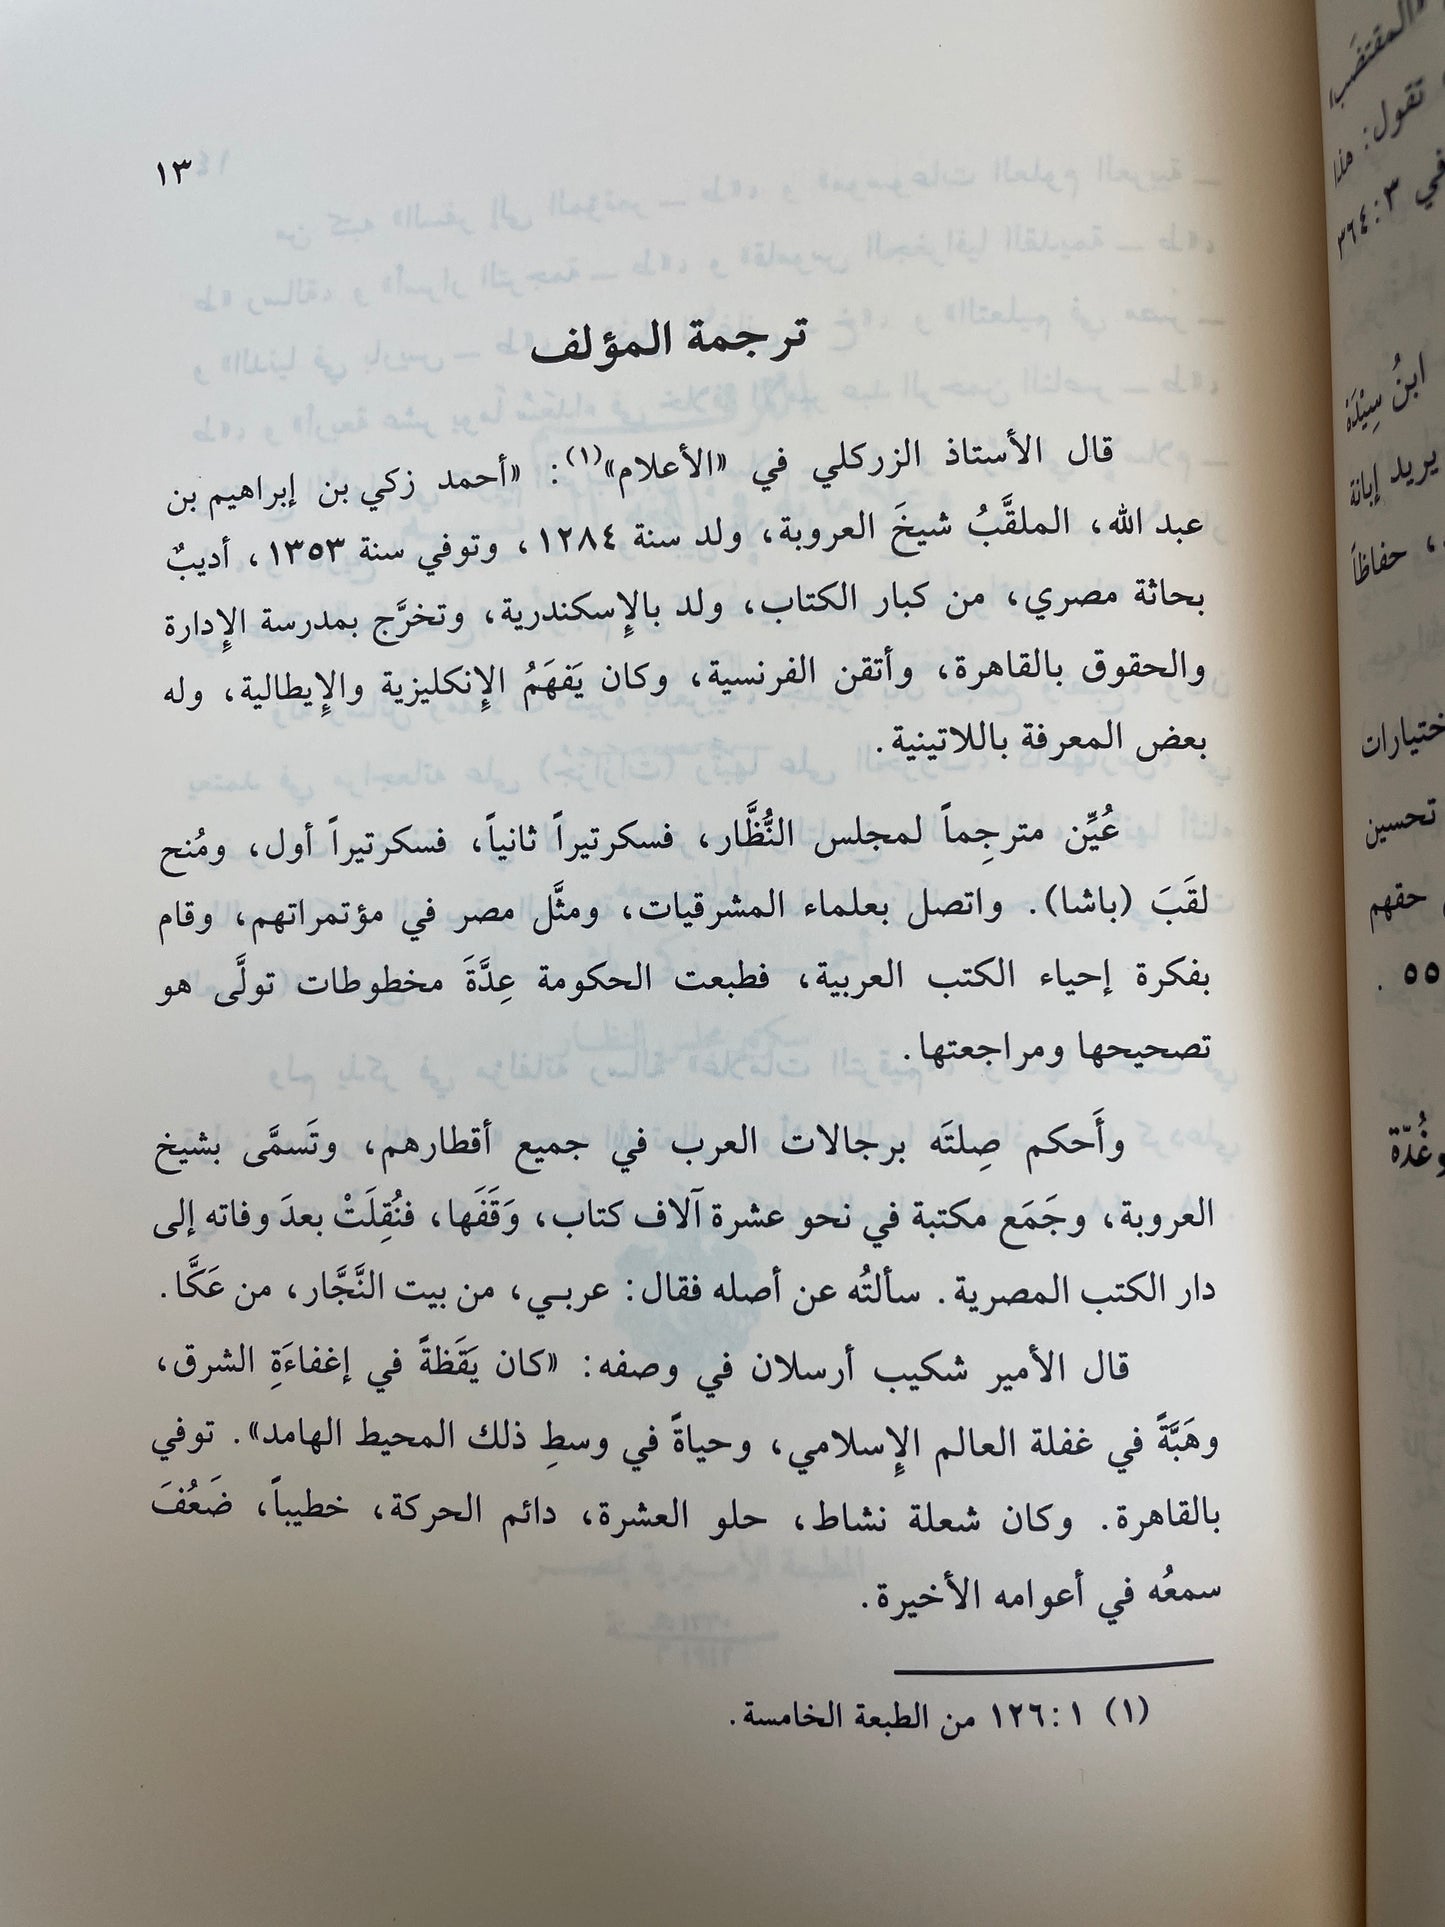 ١٣
ترجمة المؤلف
قال الأستاذ الزركلي في «الأعلام»(١): «أحمد زكي بن إبراهيم بن
عبد الله، الملقَّبُ شيخَ العروبة، ولد سنة ١٢٨٤، وتوفي سنة ١٣٥٣، أديبٌ
بحاثة مصري، من كبار الكتاب، ولد بالإِسكندرية، وتخرَّج بمدرسة الإِدارة
والحقوق بالقاهرة، وأتقن الفرنسية، وكان يَفهَمُ الإِنكليزية والإِيطالية، وله
بعض المعرفة باللاتينية.
عُيِّن مترجِماً لمجلس النُّظَّار، فسكرتيراً ثانياً، فسكرتيراً أول، ومُنح
لقَبَ (باشا). واتصل بعلماء المشرقيات، ومثَّل مصر في مؤتمراتهم، وقام
بفكرة إحياء الكتب العربية، فطبعت الحكومة عِدَّةَ مخطوطات تولَّى هو
تصحيحها ومراجعتها.
وأَحكم صِلتَه برجالات العرب في جميع أقطارهم، وتَسمَّى بشيخ
العروبة، وجَمَع مكتبة في نحو عشرة آلاف كتاب، وَقَفَها، فنُقِلَتْ بعدَ وفاته إلى
دار الكتب المصرية. سألتُه عن أصله فقال: عربي، من بيت النَّجَّار، من عَكَّا.
قال الأمير شكيب أرسلان في وصفه: «كان يَقَظةً في إغفاءَةِ الشرق،
وهَبَّةً في غفلة العالم الإِسلامي، وحياةً في وسطِ ذلك المحيط الهامد». توفي
بالقاهرة. وكان شعلة نشاط، حلو العشرة، دائم الحركة، خطيباً، ضَعُفَ
سمعُه في أعوامه الأخيرة.
(١) ١:١٢٦ من الطبعة الخامسة.
المقتضَب
تقول: هذا
في ٣:٣٦٤
ابنُ سِيْدَهْ
يريد إبانة
، حفاظاً
ختيارات
تحسين
حقهم
٥٥.
وغُدَّة